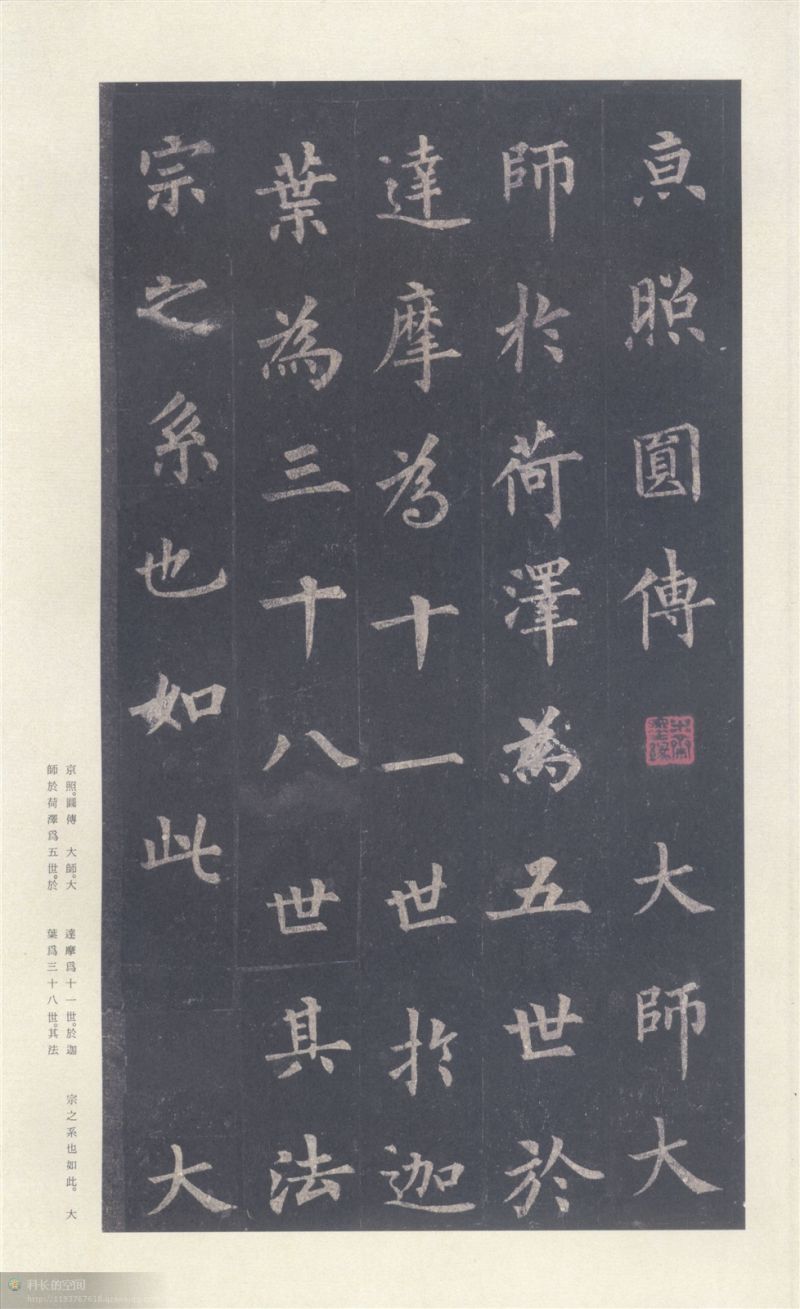 京照圓傳 大師大
師於荷澤為五世於
達摩為十一世於迦
葉為三十八世其法
宗之系也如此 大
京照。圓傳 大師。大
師於荷澤爲五世。於
達摩爲十一世。於迦
葉爲三十八世。其法
宗之系也如此。 大
科长的空间